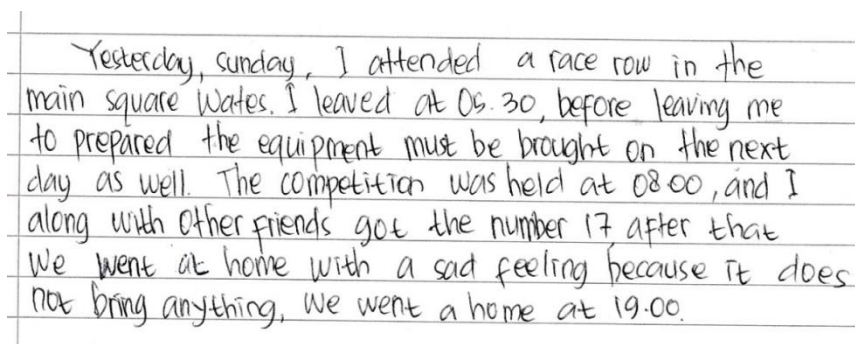 Yesterday, sunday, I attended a race row in the
main square Wates. I leaved at 05.30, before leaving me
to prepared the equipment must be brought on the next
day as well. The competition was held at 08.00, and I
along with other friends got the number 17 after that
We went at home with a sad feeling because it does
not bring anything, We went a home at 19.00.